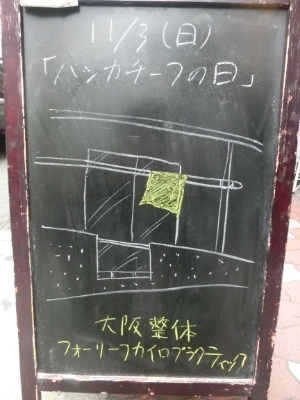 11/3(日)
「ハンカチーフの日」
大阪整体
フォーリーフカイロプラクティック